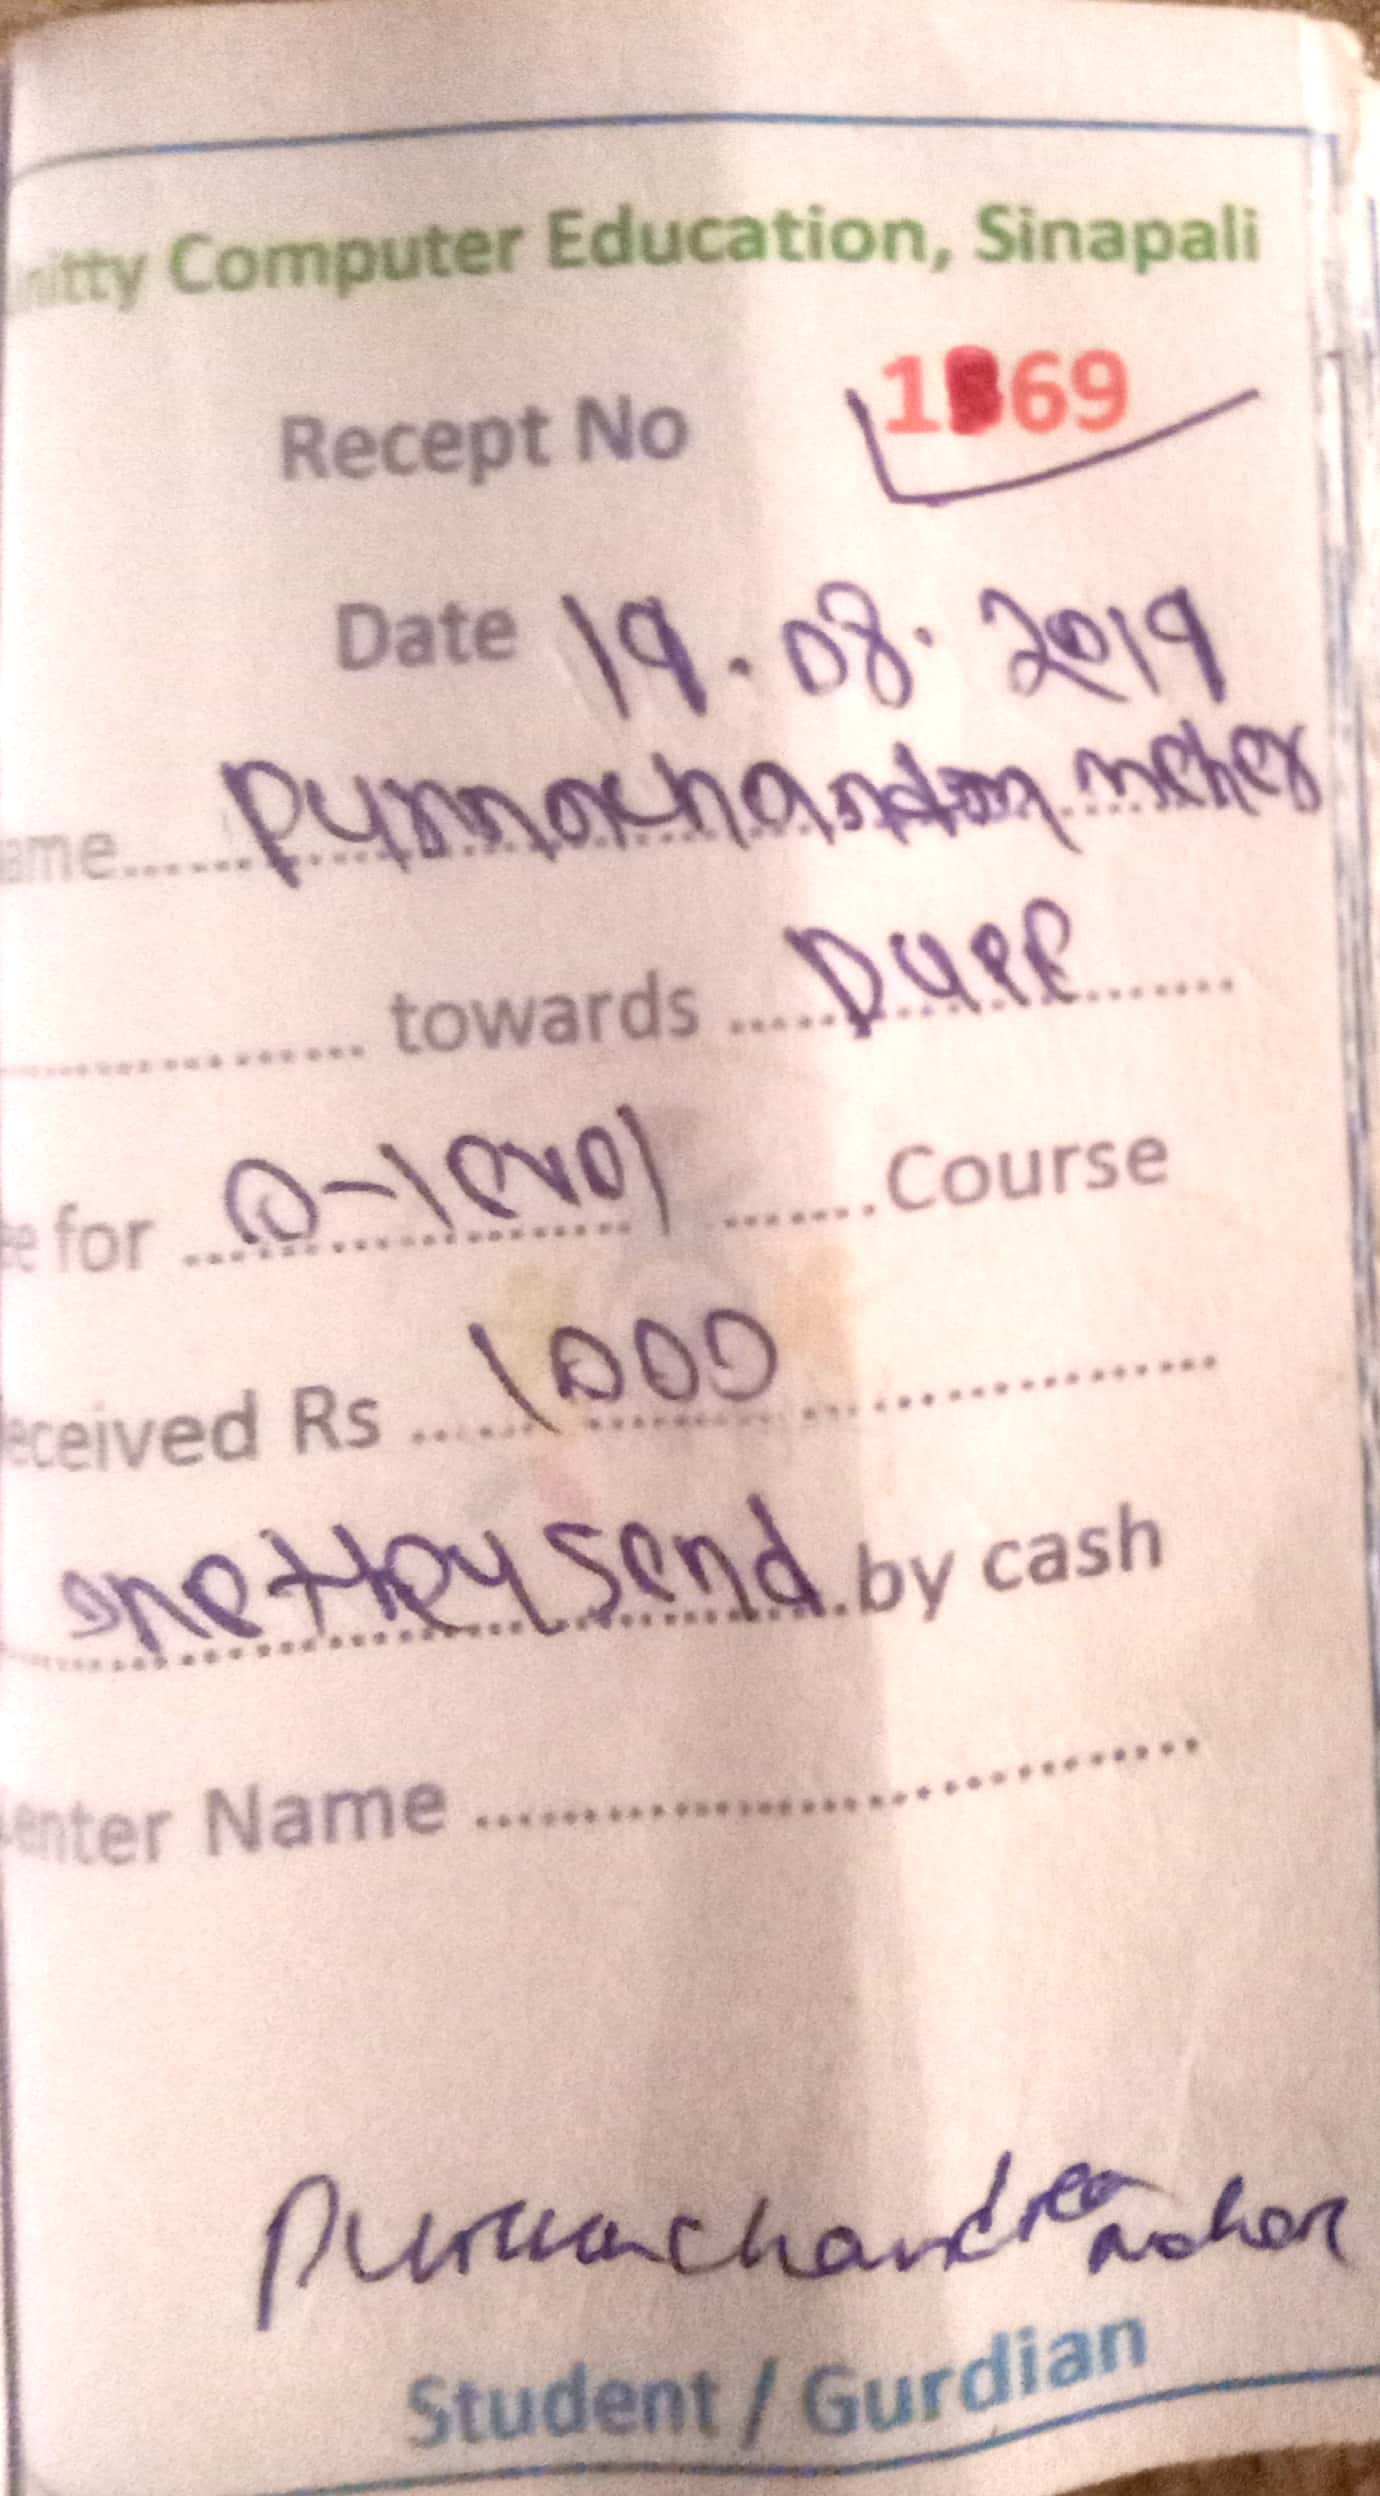 nitty Computer Education, Sinapali
Recept No 1369
Date 19.08.2019
ame...... Purnachandra meher
............... towards ..... Due ........
e for ... O-level ....... Course
eceived Rs ..... 1000 ...............
one theysend by cash
enter Name ..............................
Purnachandra meher
Student / Gurdian